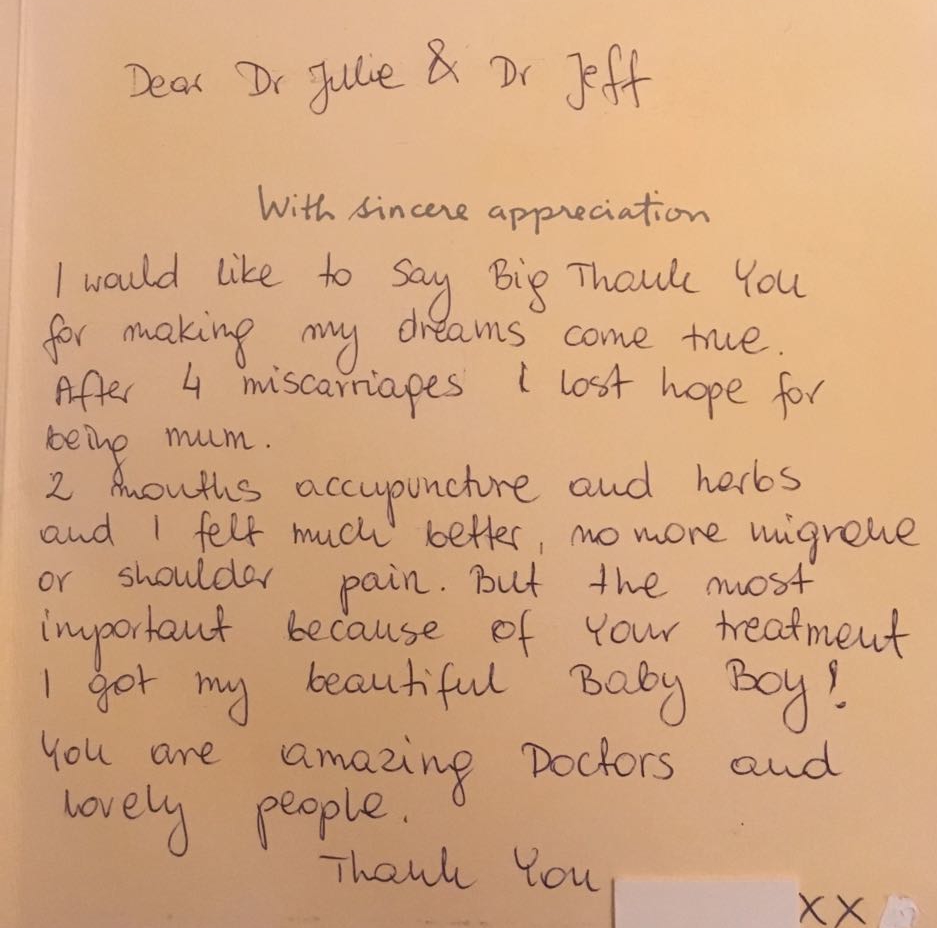 Dear Dr Julie & Dr Jeff
With sincere appreciation
I would like to say Big Thank You
for making my dreams come true.
After 4 miscarriages I lost hope for
being mum.
2 months accupuncture and herbs
and I felt much better, no more migrene
or shoulder pain. But the most
important because of Your treatment
I got my beautiful Baby Boy!
You are amazing Doctors and
lovely people.
Thank You
xx